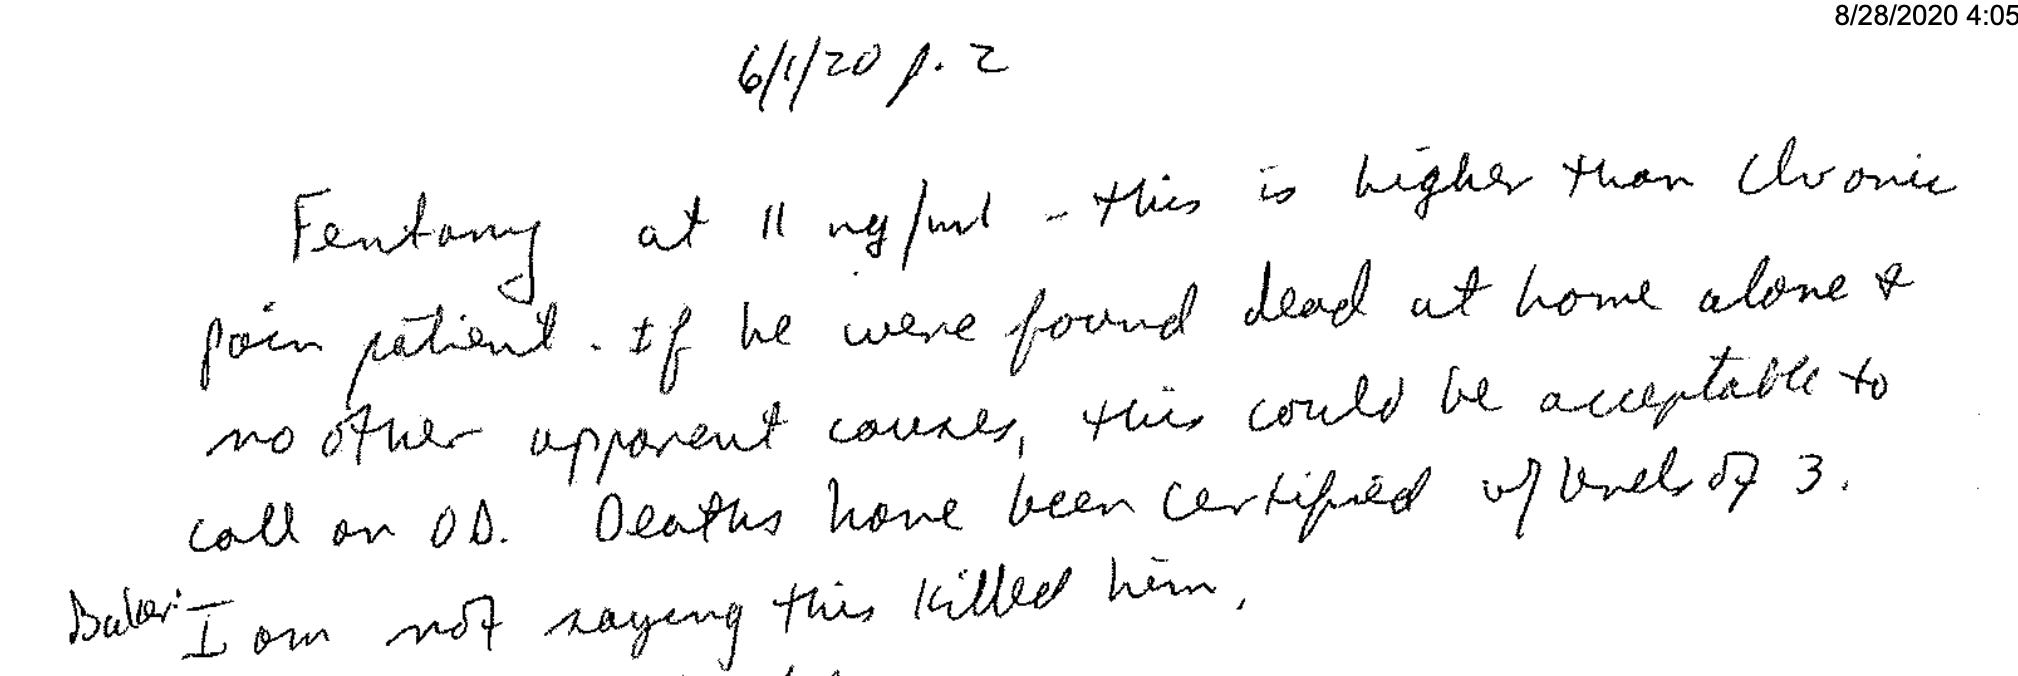 8/28/2020 4:05
6/1/20 p. 2
Fentany at 11 ng/ml - this is higher than chronic
pain patient. If he were found dead at home alone &
no other apparent causes, this could be acceptable to
call an OD. Deaths have been certified w/ levels of 3.
Baker: I am not saying this killed him.